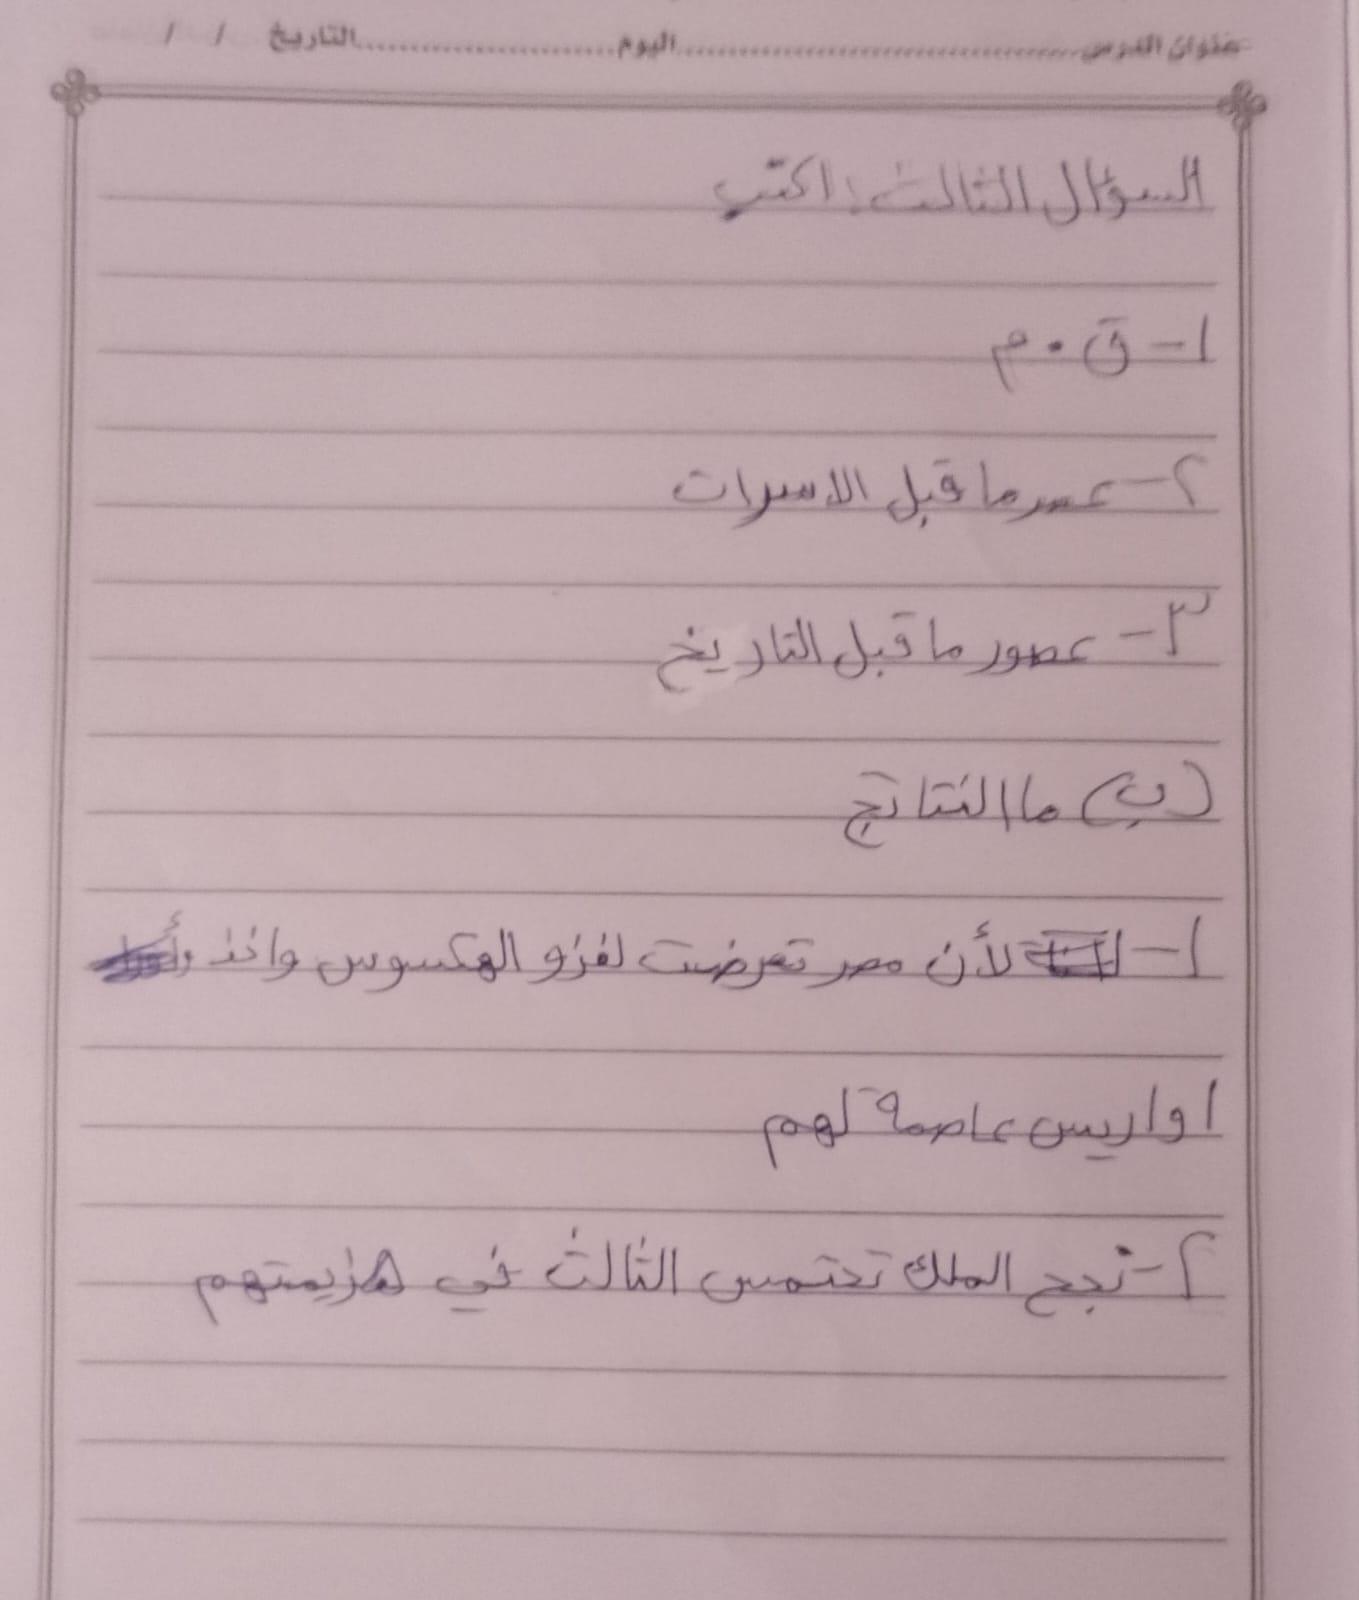 عنوان الدرس..........................اليوم..................التاريخ / /
السؤال الثالث: اكتب
١- ق . م
٢- عصر ما قبل الاسرات
٣- عصور ما قبل التاريخ
(ب) ما النتائج
١- لأن مصر تعرضت لغزو الهكسوس واخذوا
اواريس عاصمة لهم
٢- نجح الملك تحتمس الثالث في هزيمتهم